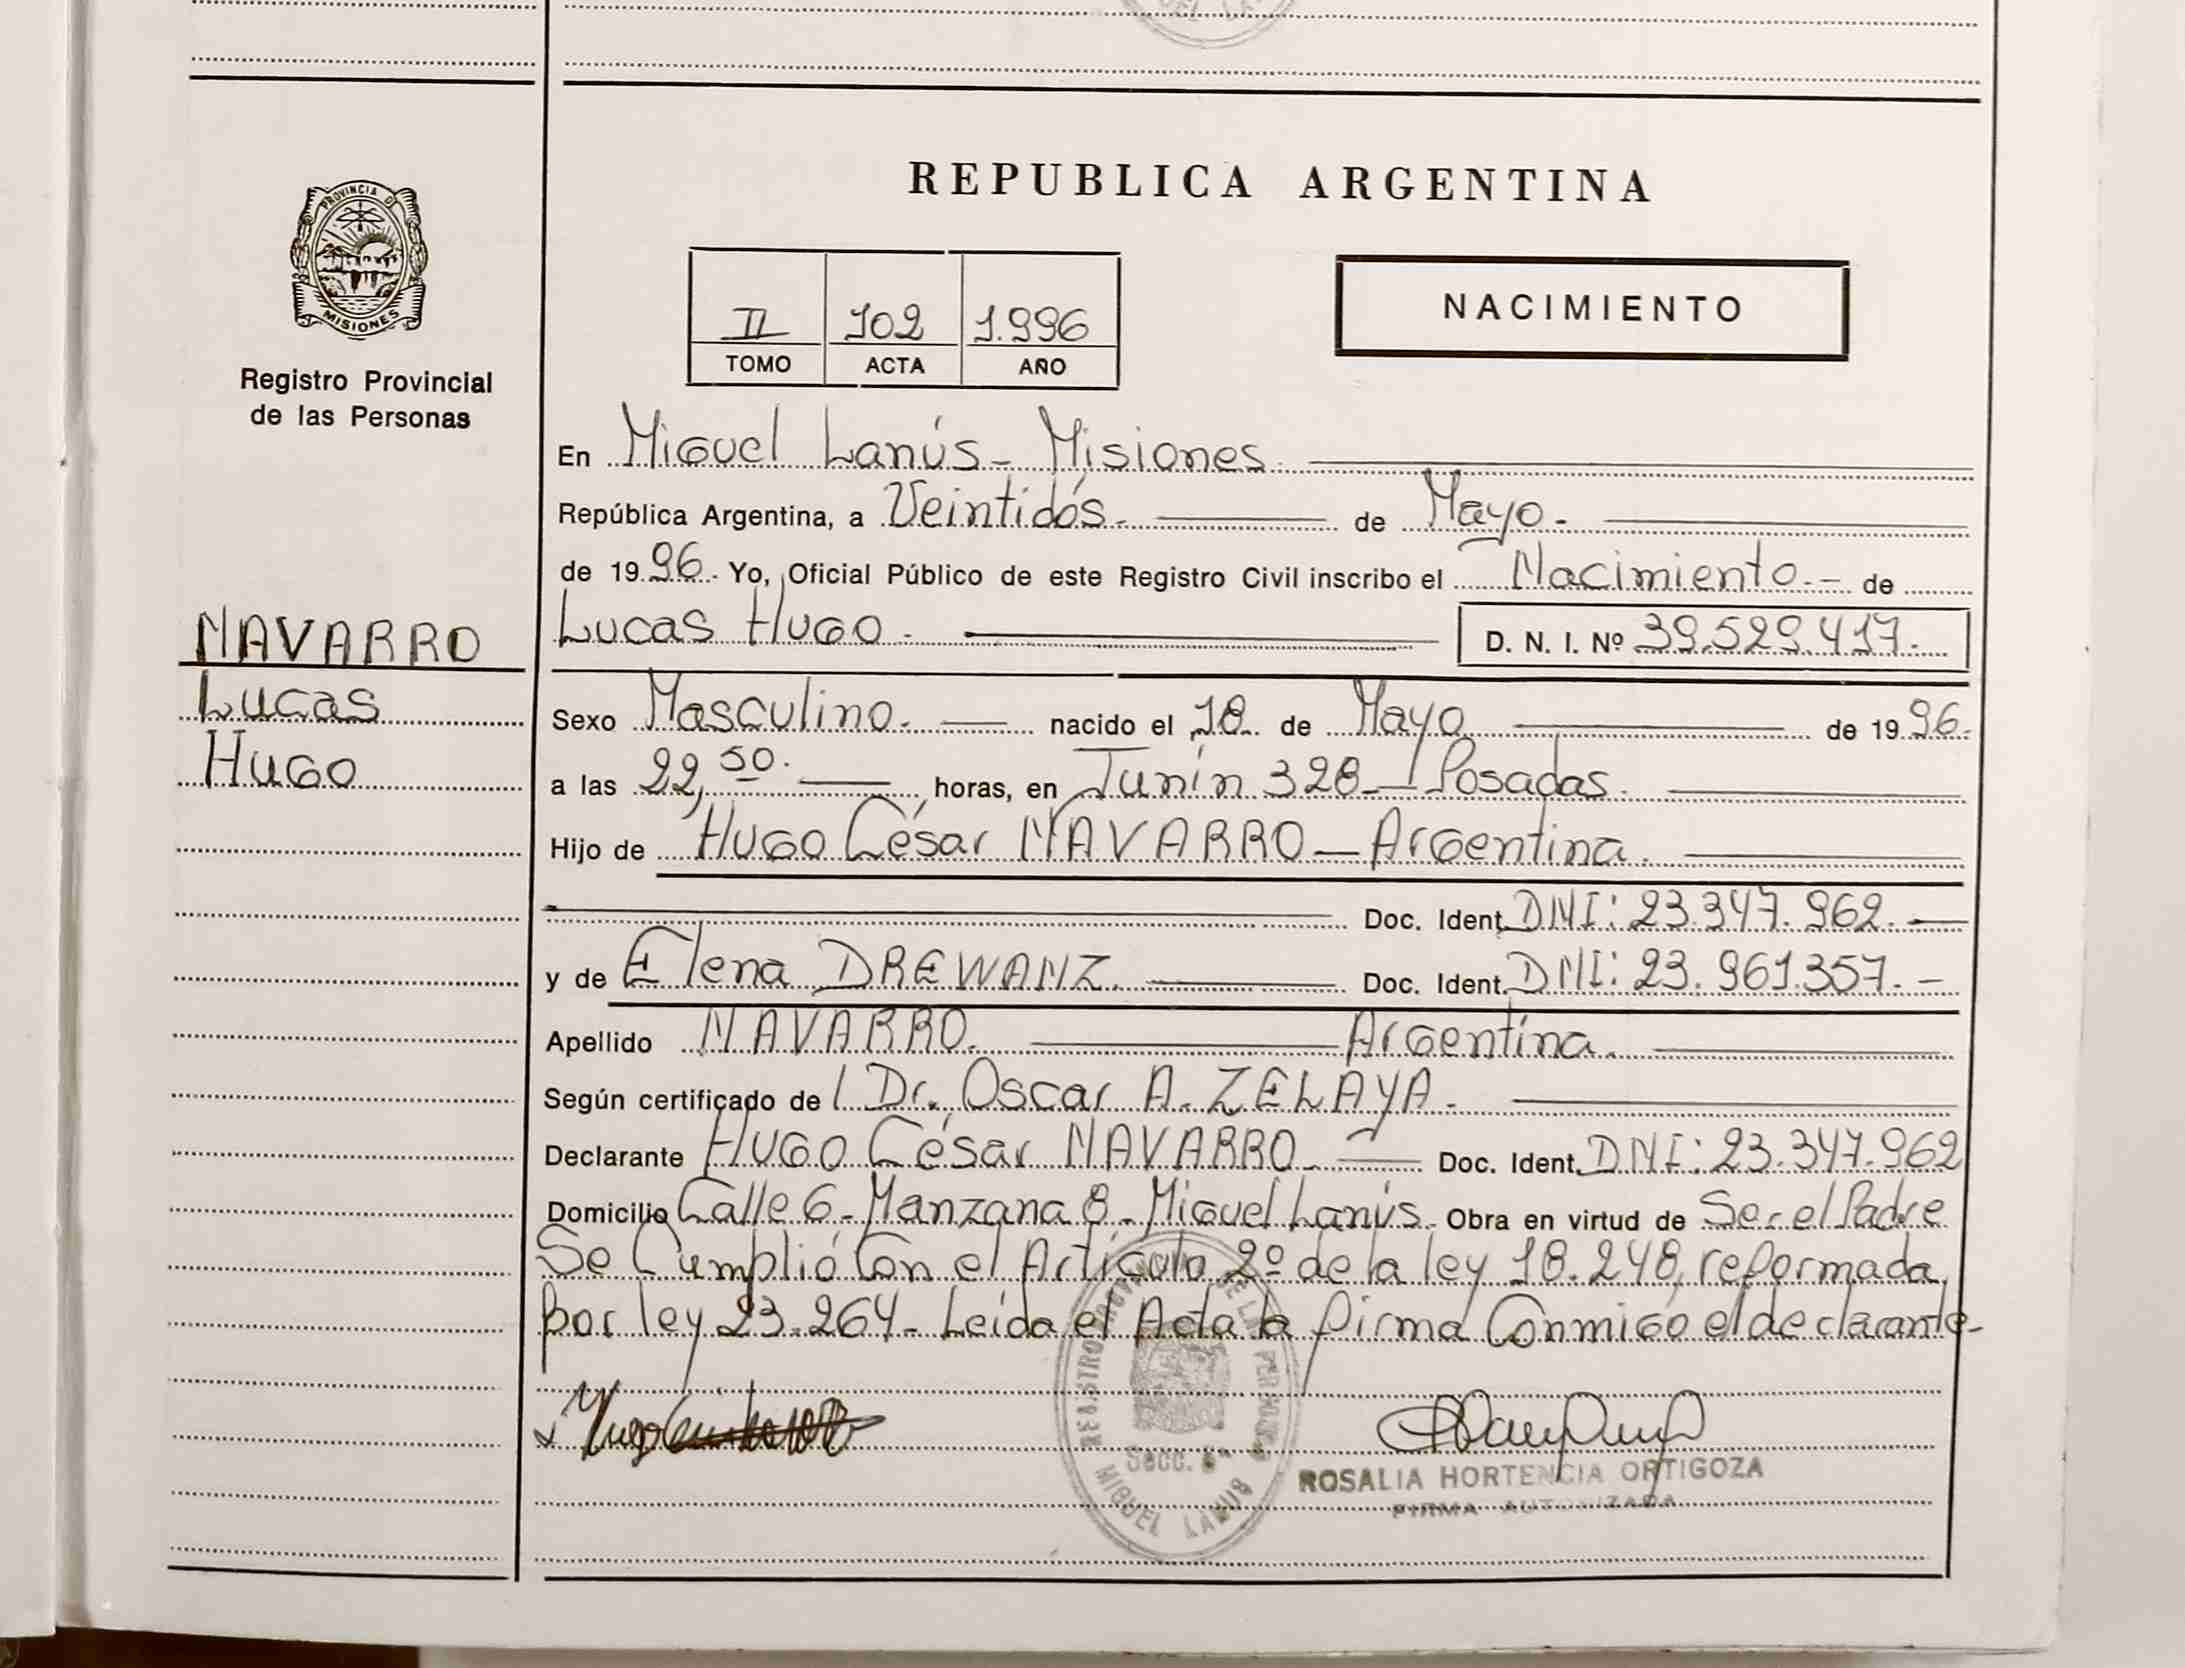 MIGUEL LANUS
REPUBLICA ARGENTINA
PROVINCIA D
MISIONES
Registro Provincial
de las Personas
II 102 1.996
TOMO ACTA AÑO
NACIMIENTO
En Miguel Lanús - Misiones.
República Argentina, a Veintidós. de Mayo.
de 1996. Yo, Oficial Público de este Registro Civil inscribo el Nacimiento. - de
NAVARRO
Lucas
Hugo
Lucas Hugo. D. N. I. Nº 39.529.417.
Sexo Masculino. nacido el 18. de Mayo de 1996.
a las 22,50. horas, en Junín 328 - Posadas.
Hijo de Hugo César NAVARRO - Argentina.
Doc. Ident. DNI: 23.347.962. -
y de Elena DREWANZ. Doc. Ident. DNI: 23.961.357. -
Apellido NAVARRO. Argentina.
Según certificado de Dr. Oscar A. ZELAYA.
Declarante Hugo César NAVARRO. - Doc. Ident. DNI: 23.347.962
Domicilio Calle 6 - Manzana 8 - Miguel Lanús. Obra en virtud de Ser el Padre
Se Cumplió Con el Artículo 2º de la ley 18.248, reformada
por ley 23.264 - Leída el Acta la firma Conmigo el declarante -
REGISTRO PROVINCIAL DE LAS PERSONAS
Secc. 6ª
MIGUEL LANUS
ROSALIA HORTENCIA ORTIGOZA
FIRMA AUTORIZADA